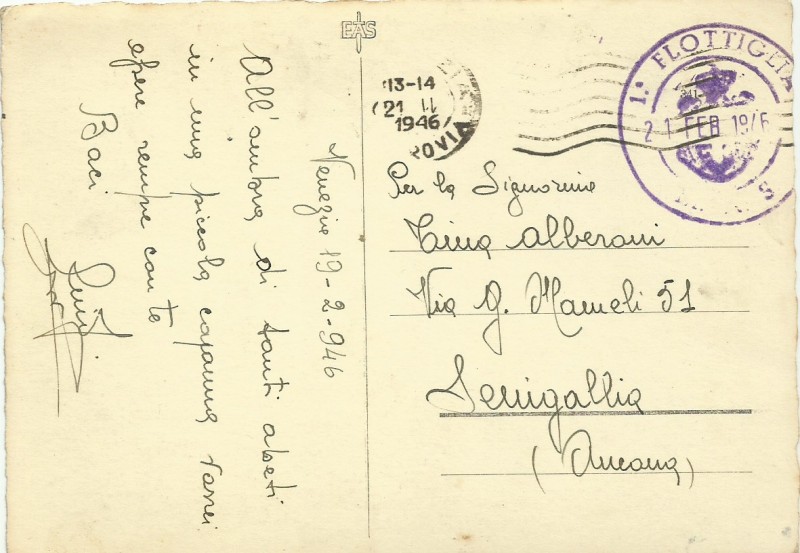 EAS
Venezia 19-2-946
All'ombra di tanti abeti
in una piccola capanna vorrei
essere sempre con te
Baci
13-14
21 II
1946
ROVIA
1.ª FLOTTIGLIA
21 FEB 1946
Per la Signorina
Tina Alberoni
Via G. Mameli 51
Senigallia
(Ancona)